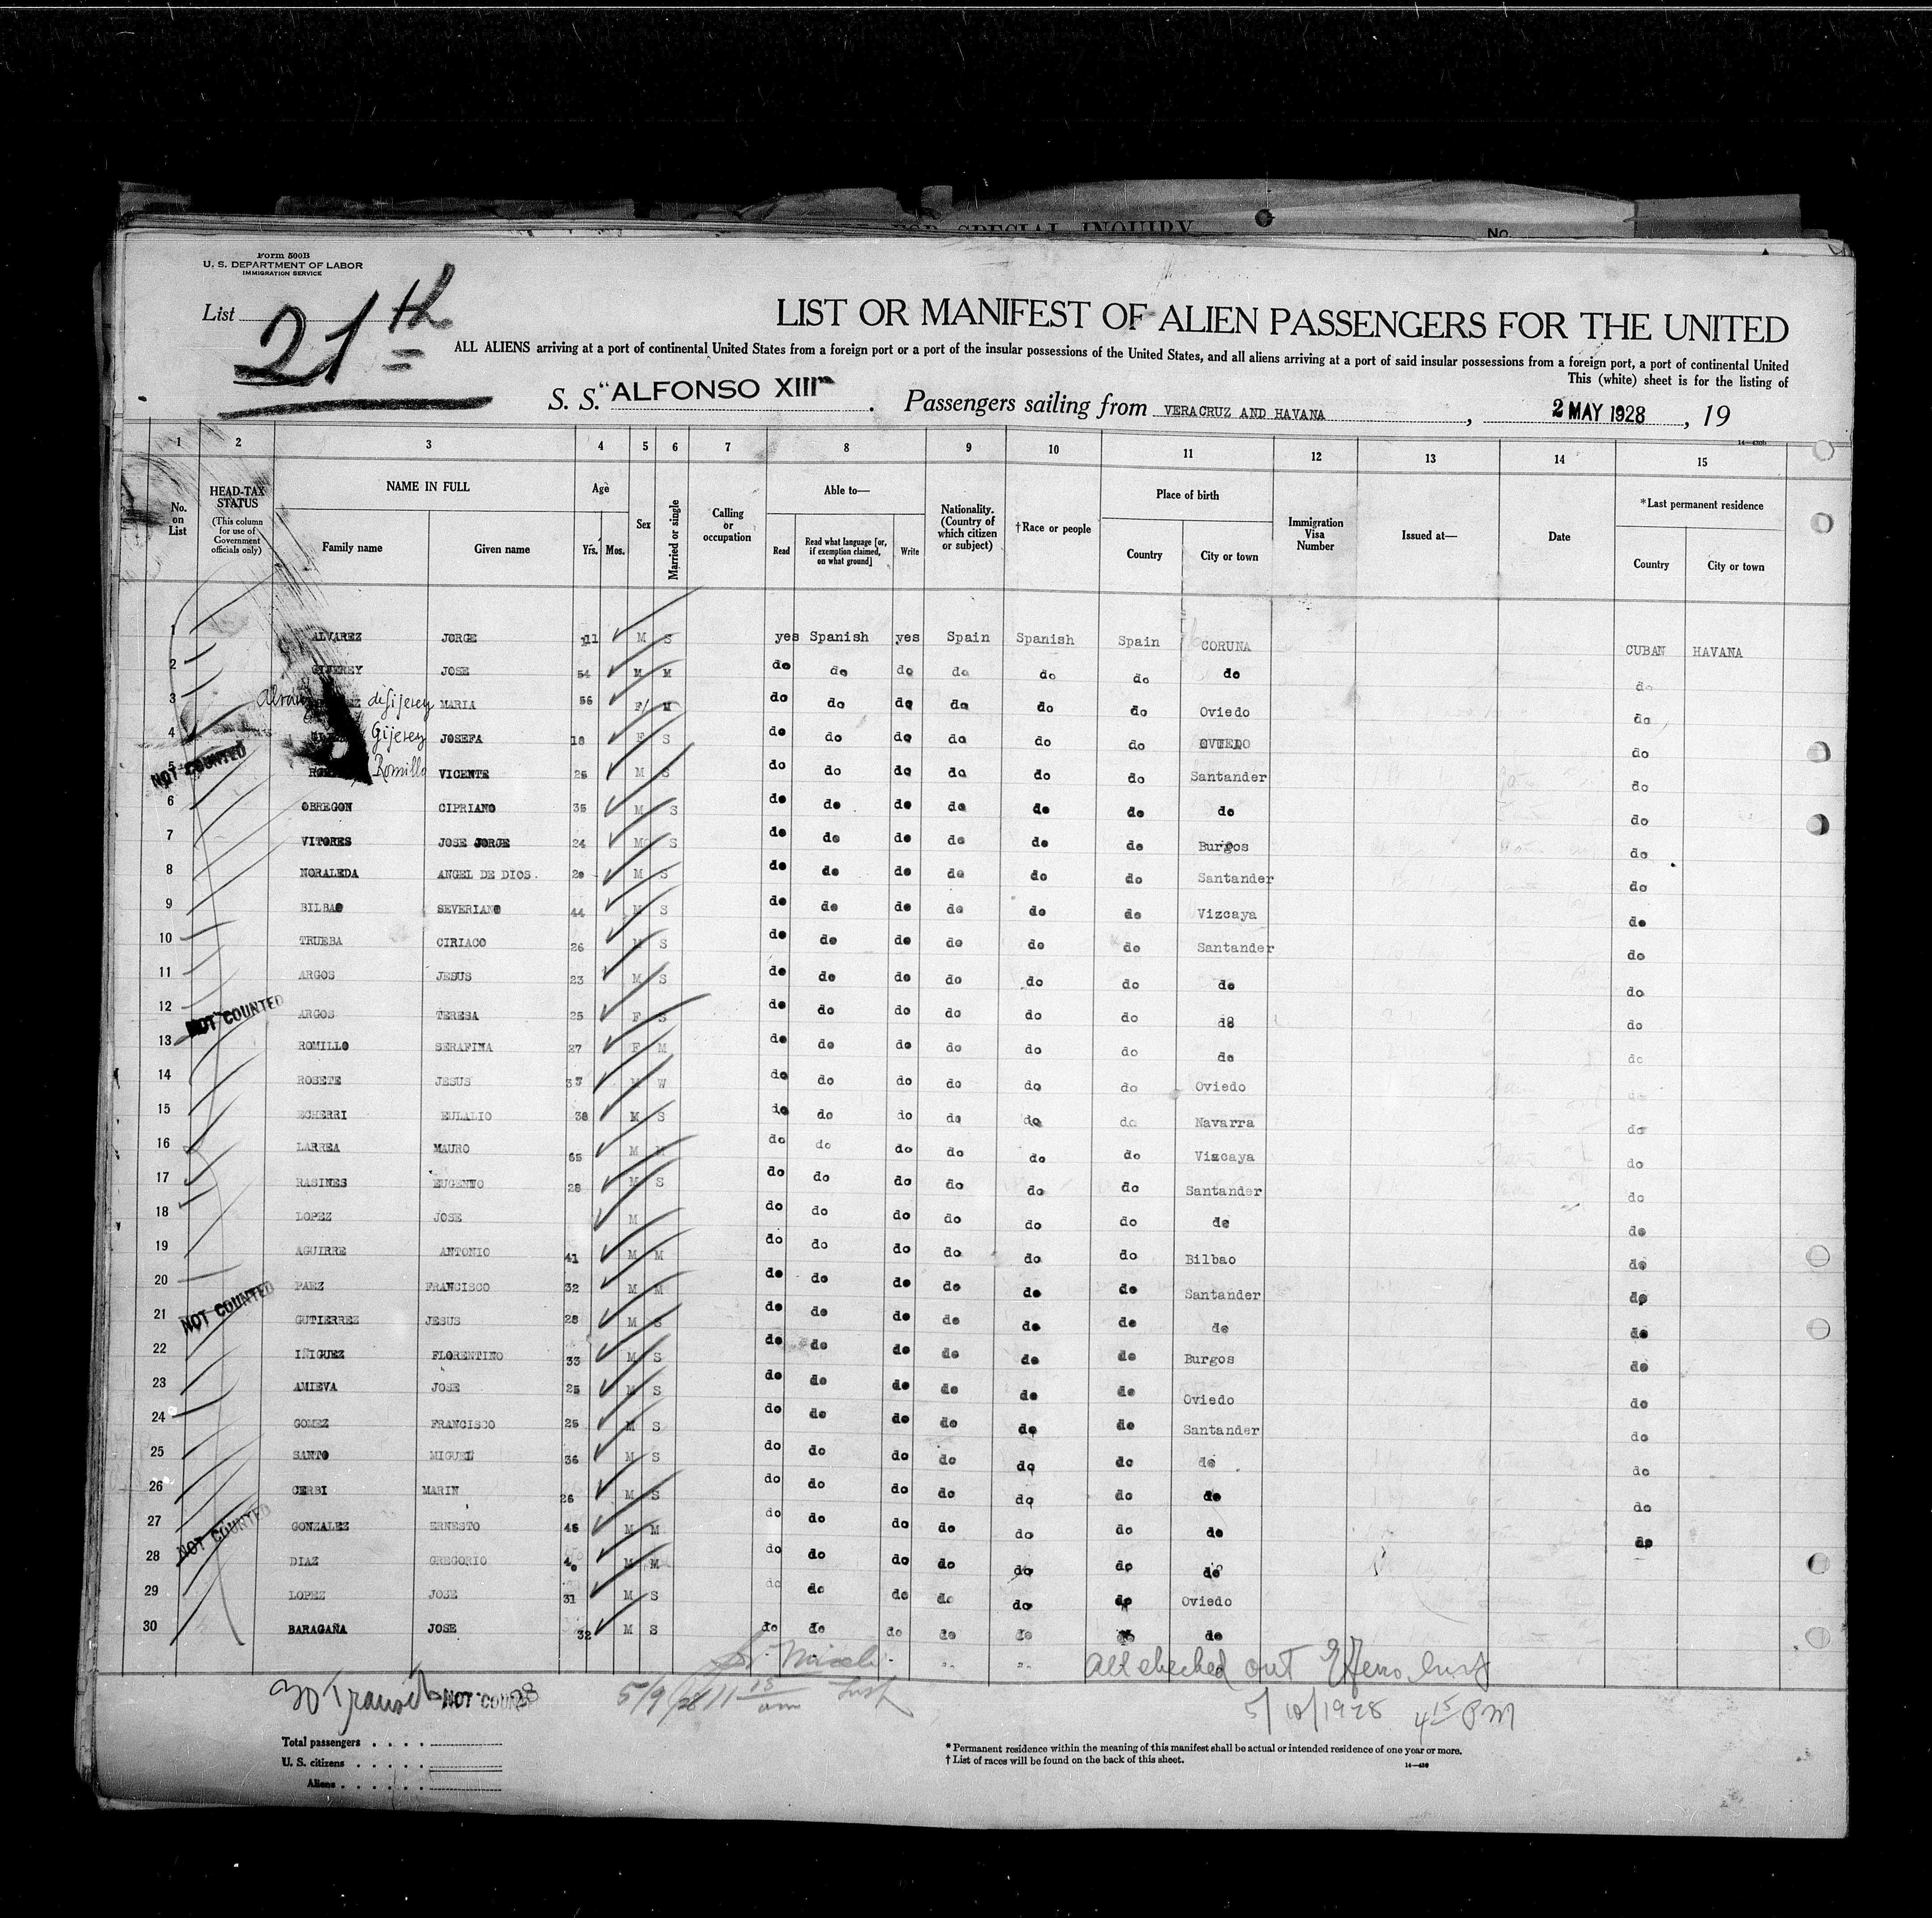 FOR SPECIAL INQUIRY No.
Form 500B
U. S. DEPARTMENT OF LABOR
IMMIGRATION SERVICE
List 21th
LIST OR MANIFEST OF ALIEN PASSENGERS FOR THE UNITED
ALL ALIENS arriving at a port of continental United States from a foreign port or a port of the insular possessions of the United States, and all aliens arriving at a port of said insular possessions from a foreign port, a port of continental United
This (white) sheet is for the listing of
S. S. "ALFONSO XIII" . Passengers sailing from VERACRUZ AND HAVANA , 2 MAY 1928 , 19
14—430b
1 2 3 4 5 6 7 8 9 10 11 12 13 14 15
No. on List
HEAD-TAX STATUS
(This column for use of Government officials only)
NAME IN FULL
Family name Given name
Age
Yrs. Mos.
Sex
Married or single
Calling or occupation
Able to—
Read
Read what language [or, if exemption claimed, on what ground]
Write
Nationality. (Country of which citizen or subject)
†Race or people
Place of birth
Country City or town
Immigration Visa Number
Issued at—
Date
*Last permanent residence
Country City or town
1 ALVAREZ JORGE 11 M S yes Spanish yes Spain Spanish Spain CORUNA CUBAN HAVANA
2 GIJEREY JOSE 54 M M do do do do do do do do
3 de Gijerey MARIA 56 F M do do do do do do Oviedo do
4 Gijerey JOSEFA 18 F S do do do do do do OVIEDO do
NOT COUNTED
5 Romillo VICENTE 25 M S do do do do do do Santander do
6 OBREGON CIPRIANO 35 M S do do do do do do do do
7 VITORES JOSE JORGE 24 M S do do do do do do Burgos do
8 NORALEDA ANGEL DE DIOS. 20 M S do do do do do do Santander do
9 BILBAO SEVERIANO 44 M S do do do do do do Vizcaya do
10 TRUEBA CIRIACO 26 M S do do do do do do Santander do
11 ARGOS JESUS 23 M S do do do do do do do do
12 ARGOS TERESA 25 F S do do do do do do do do
NOT COUNTED
13 ROMILLO SERAFINA 27 F M do do do do do do do do
14 ROSETE JESUS M W do do do do do do Oviedo do
15 ECHERRI EULALIO 38 M S do do do do do do Navarra do
16 LARREA MAURO 65 M M do do do do do do Vizcaya do
17 RASINES EUGENIO 28 M S do do do do do do Santander do
18 LOPEZ JOSE M do do do do do do do do
19 AGUIRRE ANTONIO 41 M M do do do do do do Bilbao do
20 PAEZ FRANCISCO 32 M M do do do do do do Santander do
NOT COUNTED
21 GUTIERREZ JESUS 28 M S do do do do do do do do
22 IÑIGUEZ FLORENTINO 33 M S do do do do do do Burgos do
23 AMIEVA JOSE 25 M S do do do do do do Oviedo do
24 GOMEZ FRANCISCO 25 M S do do do do do do Santander do
25 SANTO MIGUEL 36 M S do do do do do do do do
26 CERBI MARIN 26 M S do do do do do do do do
27 GONZALEZ ERNESTO 45 M M do do do do do do do do
NOT COUNTED
28 DIAZ GREGORIO 40 M M do do do do do do do
29 LOPEZ JOSE 31 M S do do do do do do Oviedo
30 BARAGAÑA JOSE 32 M S do do do do do do do
All checked out
30 Transit NOT COUNTED
5/9/28 11 15 am Insp
5/10/1928 4 15 PM
Total passengers . . . .
U. S. citizens . . . . .
Aliens . . . . . .
* Permanent residence within the meaning of this manifest shall be actual or intended residence of one year or more.
† List of races will be found on the back of this sheet.
14—430